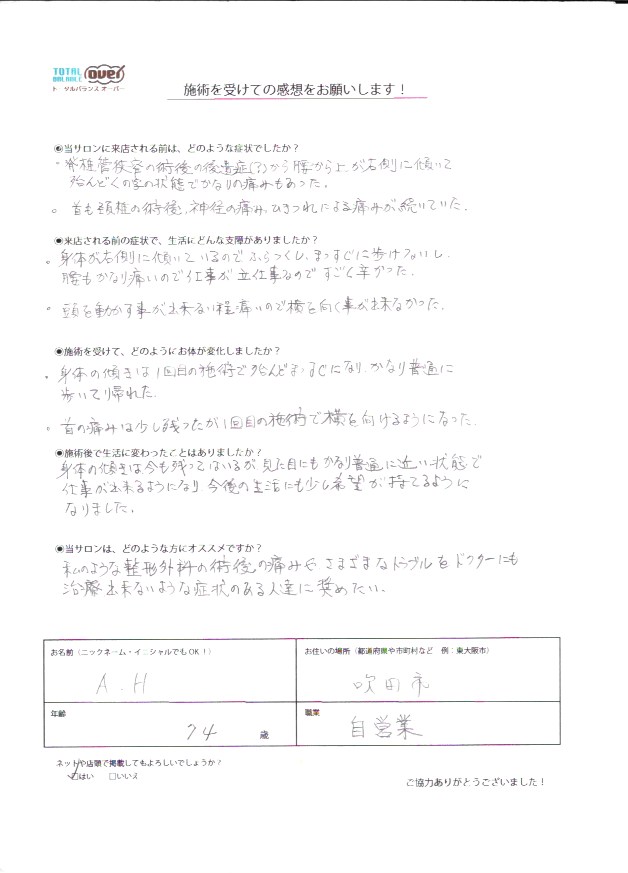 TOTAL BALANCE over
トータルバランス オーバー
施術を受けての感想をお願いします！
◉当サロンに来店される前は、どのような症状でしたか？
・脊椎管狭窄の術後の後遺症(?)から腰から上が右側に傾いて
殆んどくの字の状態でかなりの痛みもあった。
。首も頚椎の術後、神経の痛み、ひきつれによる痛みが続いていた。
◉来店される前の症状で、生活にどんな支障がありましたか？
・身体が右側に傾いているのでふらつくし、まっすぐに歩けないし、
腰もかなり痛いので仕事が立仕事なのですごく辛かった。
。頭を動かす事が出来ない程痛いので横を向く事が出来なかった。
◉施術を受けて、どのようにお体が変化しましたか？
・身体の傾きは1回目の施術で殆んどまっすぐになり、かなり普通に
歩いて帰れた。
。首の痛みは少し残ったが1回目の施術で横を向けるようになった。
◉施術後で生活に変わったことはありましたか？
身体の傾きは今も残ってはいるが見た目にもかなり普通に近い状態で
仕事が出来るようになり、今後の生活にも少し希望が持てるように
なりました。
◉当サロンは、どのような方にオススメですか？
私のような整形外科の術後の痛みやさまざまなトラブルをドクターにも
治療出来ないような症状のある人達に奨めたい。
お名前（ニックネーム・イニシャルでもOK！）
A.H
お住いの場所（都道府県や市町村など 例：東大阪市）
吹田市
年齢
74 歳
職業
自営業
ネットや店頭で掲載してもよろしいでしょうか？
☑はい □いいえ
ご協力ありがとうございました！